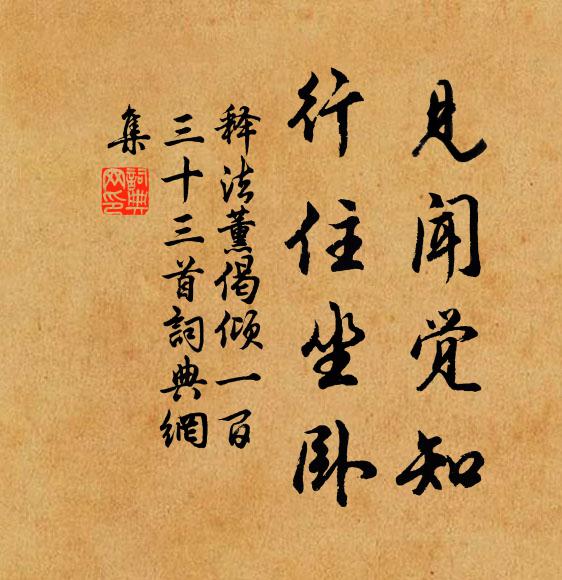 见闻觉知
行住坐卧
释法薰偈倾一百
三十三首詞典網
集
詞典网印